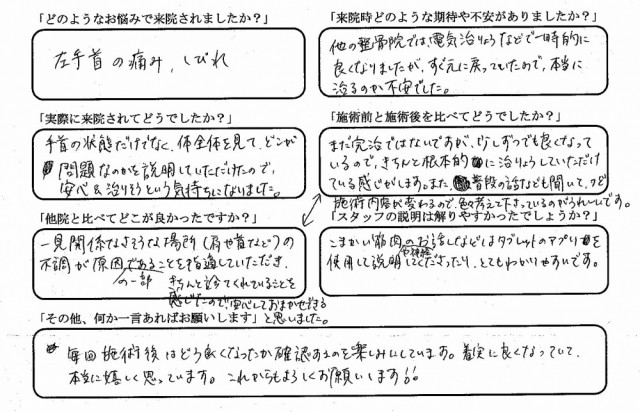 「どのようなお悩みで来院されましたか？」
左手首の痛み、しびれ
「来院時どのような期待や不安がありましたか？」
他の整骨院では、電気治りょうなどで一時的に
良くなりましたが、すぐ元に戻っていたので、本当に
治るのか不安でした。
「実際に来院されてどうでしたか？」
手首の状態だけでなく、体全体を見て、どこが
問題なのかを説明していただけたので、
安心&治りそうという気持ちになりました。
「施術前と施術後を比べてどうでしたか？」
まだ完治ではないですが、少しずつでも良くなって
いるので、きちんと根本的に治りょうしていただけ
ている感じがします。また、普段の話なども聞いて、つど
施術内容が変わるので、色々考えて下さっているのがうれしいです。
「他院と比べてどこが良かったですか？」
一見関係なさそうな場所（肩や首など）の
不調が原因の一部であることを指適していただき、
きちんと診てくれていることを
感じたので、安心しておまかせできる
と思いました。
「スタッフの説明は解りやすかったでしょうか？」
こまかい筋肉や神経のお話しなどはタブレットのアプリを
使用して説明してくださったり、とてもわかりやすいです。
「その他、何か一言あればお願いします」
毎回施術後はどう良くなったか確認するのを楽しみにしています。着実に良くなっていて、
本当に嬉しく思っています。これからもよろしくお願いします!!